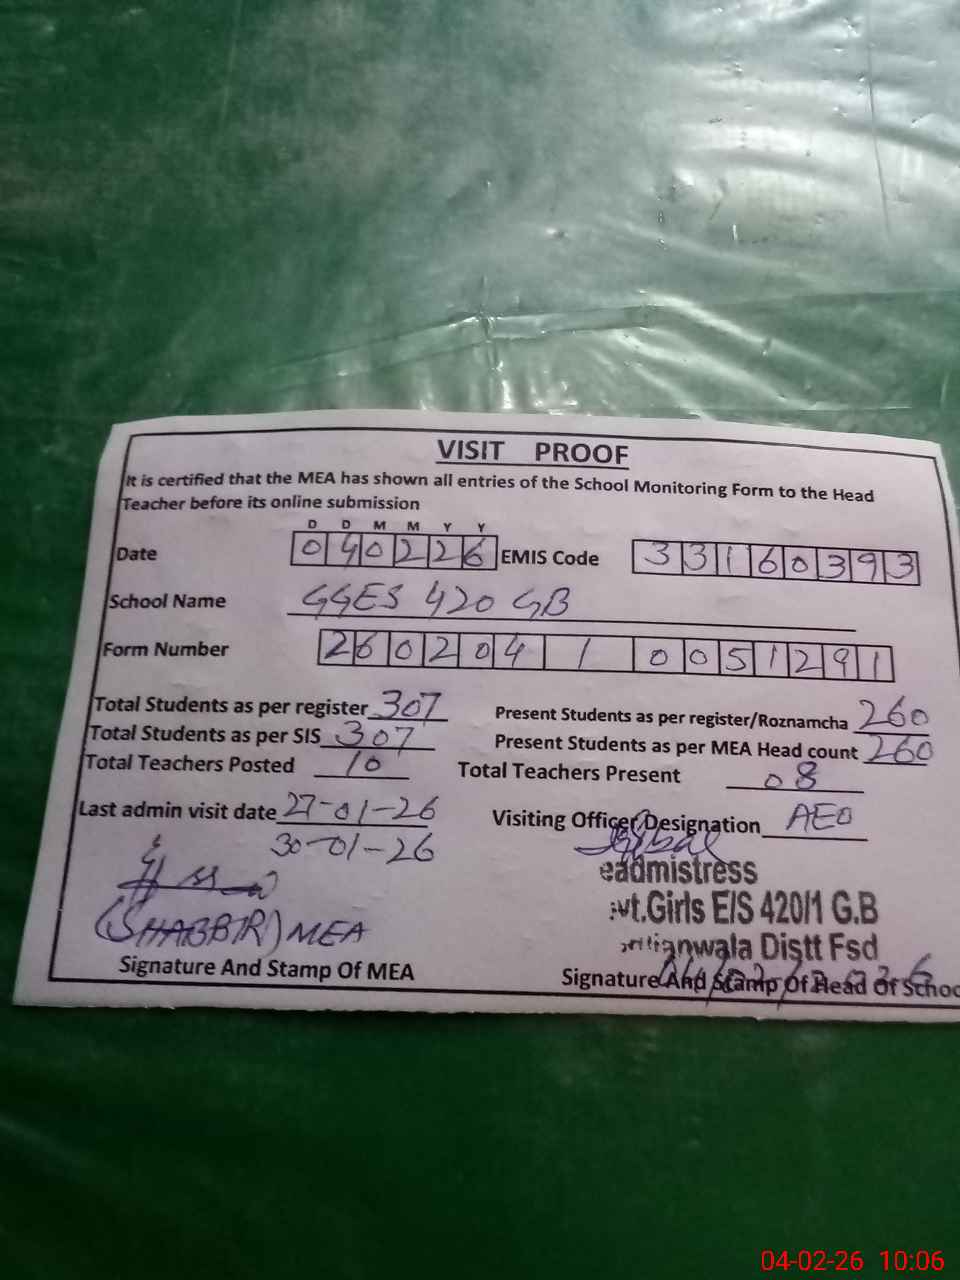 VISIT PROOF
It is certified that the MEA has shown all entries of the School Monitoring Form to the Head
Teacher before its online submission
D D M M Y Y
Date 040226 EMIS Code 33160393
School Name GGES 420 GB
Form Number 260204 1 0051291
Total Students as per register 307 Present Students as per register/Roznamcha 260
Total Students as per SIS 307 Present Students as per MEA Head count 260
Total Teachers Posted 10 Total Teachers Present 08
Last admin visit date 27-01-26 Visiting Officer Designation AEO
30-01-26
eadmistress
vt.Girls E/S 420/1 G.B
(SHABBIR) MEA
anwala Distt Fsd
Signature And Stamp Of MEA Signature And Stamp Of Head Of Schoo
04-02-26 10:06